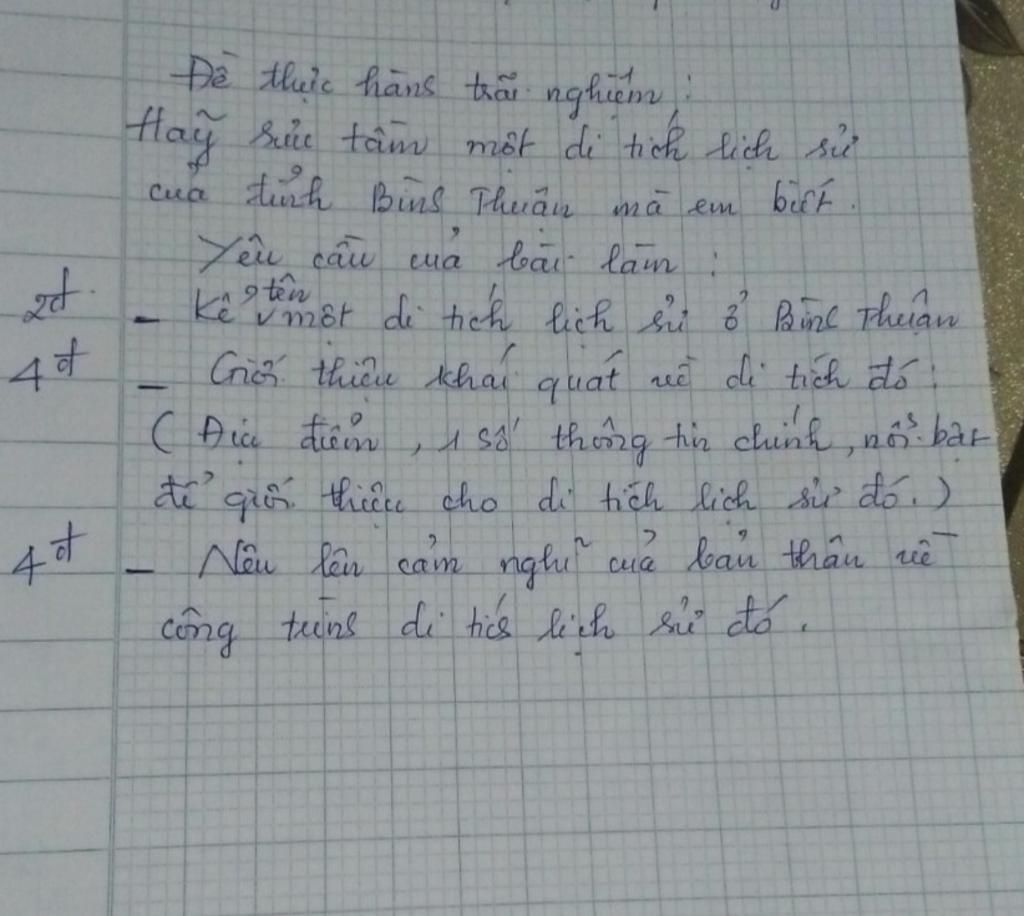 Đề thực hành trãi nghiệm :
Hãy sưu tầm một di tích lịch sử
của tỉnh Bình Thuận mà em biết.
Yêu cầu của bài làm :
2đ - Kể tên một di tích lịch sử ở Bình Thuận
4đ - Giới thiệu khái quát về di tích đó :
( Địa điểm , 1 số thông tin chính, nổi bật
để giới thiệu cho di tích lịch sử đó.)
4đ - Nêu lên cảm nghĩ của bản thân về
công trình di tích lịch sử đó.